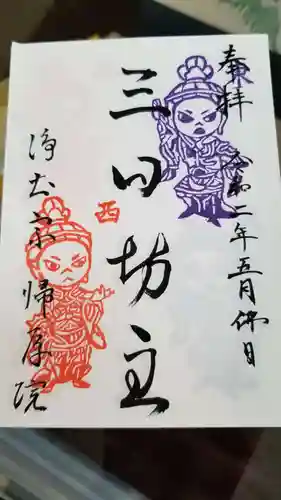 奉拝
東
令和二年五月佛日
三日坊主
西
浄土宗帰厚院